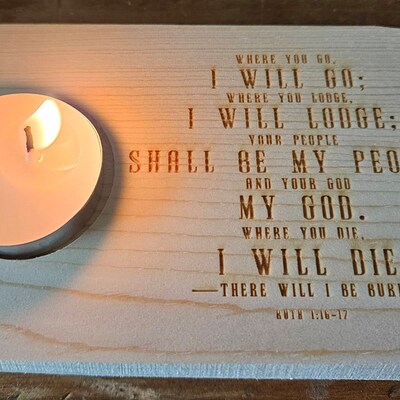 WHERE YOU GO,
I WILL GO;
WHERE YOU LODGE,
I WILL LODGE;
YOUR PEOPLE
SHALL BE MY PEO
AND YOUR GOD
MY GOD.
WHERE YOU DIE,
I WILL DIE
—THERE WILL I BE BURI
RUTH 1:16-17